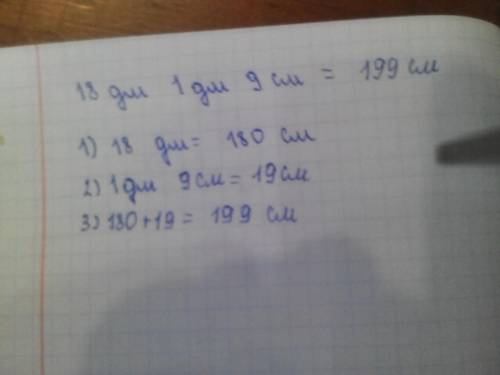 18 дм 1 дм 9 см = 199 см
1) 18 дм = 180 см
2) 1 дм 9 см = 19 см
3) 180 + 19 = 199 см